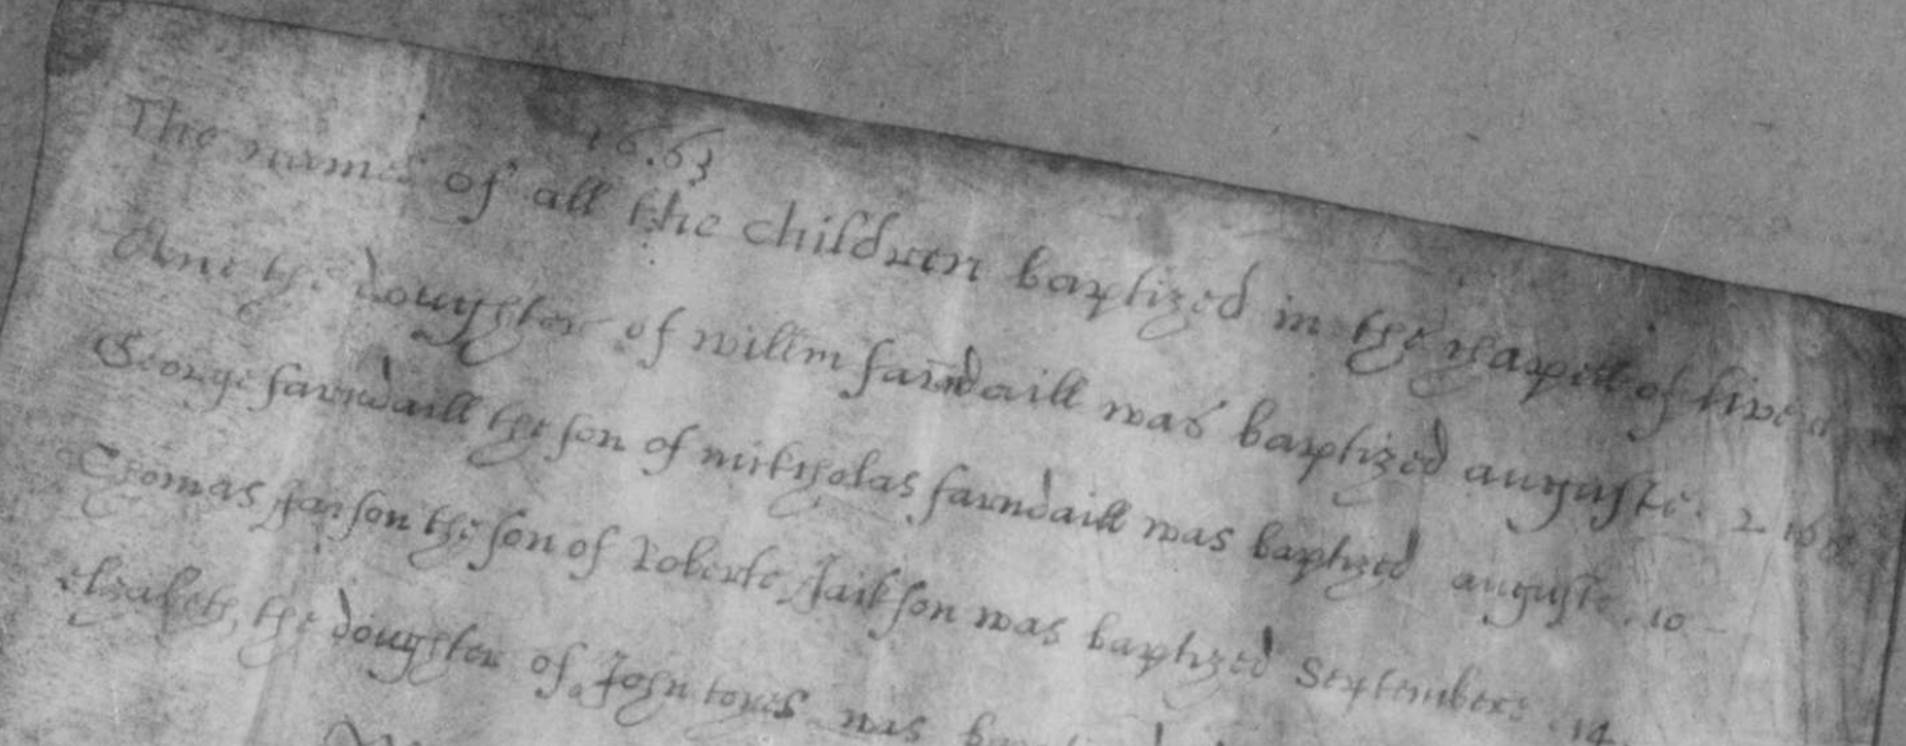 16.63
The names of all the children baptized in the chapell of live
Ane the doughter of willm farndaill was baptized auguste. 2 16
George farndaill the son of nickholas farndaill was baptized auguste. 10 -
Thomas Jaxson the son of Roberte Jaikson was baptized Septembere. 14
elizabeth, the doughter of John was